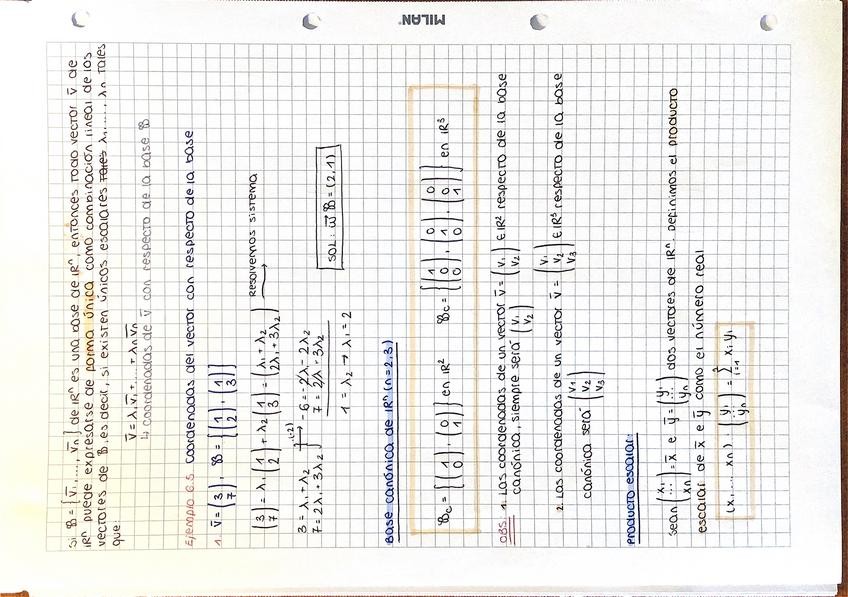 MILAN®
Si B = {v̄₁, ..., v̄ₙ} de ℝⁿ es una base de ℝⁿ, entonces todo vector v̄ de
ℝⁿ puede expresarse de forma única como combinación lineal de los
vectores de B, es decir, si existen únicos escalares tales λ₁, ..., λₙ tales
que:
v̄ = λ₁v̄₁ + ... + λₙv̄ₙ
↳ coordenadas de v̄ con respecto de la base B
Ejemplo 6.5 Coordenadas del vector con respecto de la base
1. v̄ = (3 7), B = {(1 2), (1 3)}
(3 7) = λ₁ (1 2) + λ₂ (1 3) = (λ₁ + λ₂ 2λ₁ + 3λ₂) Resolvemos sistema →
3 = λ₁ + λ₂ (-2) → -6 = -2λ₁ - 2λ₂
7 = 2λ₁ + 3λ₂ 7 = 2λ₁ + 3λ₂
1 = λ₂ → λ₁ = 2 SOL: w⃗ B = (2, 1)
Base canónica de ℝⁿ (n=2,3)
Bc = {(1 0), (0 1)} en ℝ² Bc = {(1 0 0), (0 1 0), (0 0 1)} en ℝ³
OBS: 1. Las coordenadas de un vector v̄ = (v₁ v₂) ∈ ℝ² respecto de la base
canónica, siempre será (v₁ v₂)
2. Las coordenadas de un vector v̄ = (v₁ v₂ v₃) ∈ ℝ³ respecto de la base
canónica será (v₁ v₂ v₃)
Producto escalar:
Sean (x₁ ... xₙ) = x̄ e ȳ = (y₁ ... yₙ) dos vectores de ℝⁿ. Definimos el producto
escalar de x̄ e ȳ como el número real
(x₁, ... xₙ) · (y₁ ... yₙ) = Σⁿᵢ₌₁ xᵢ yᵢ